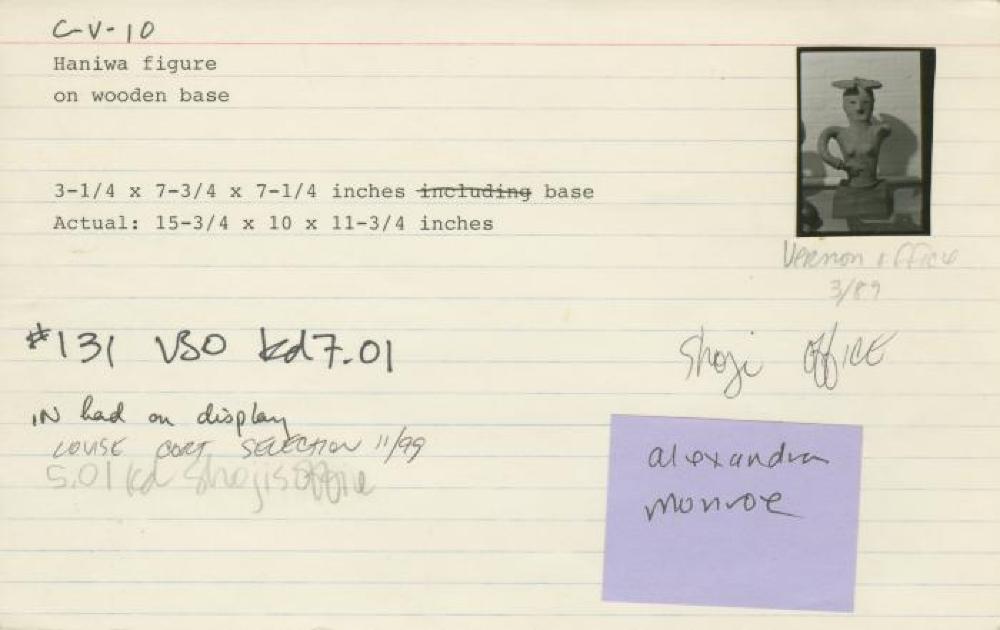 C-V-10
Haniwa figure
on wooden base
3-1/4 x 7-3/4 x 7-1/4 inches including base
Actual: 15-3/4 x 10 x 11-3/4 inches
Vernon office
3/89
#131 VSO kd7.01
Shoji OFFICE
IN had on display
LOUISE CORT SELECTION 11/99
5.01 kd Shojis Office
alexandra
monroe